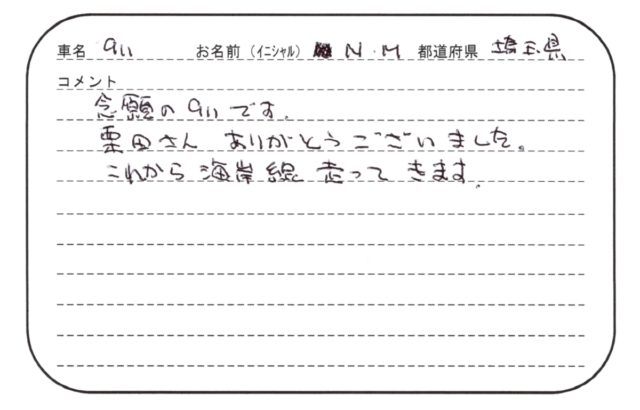 車名 911 お名前（イニシャル） N・M 都道府県 埼玉県
コメント
念願の911です.
栗田さん ありがとうございました。
これから海岸線走ってきます.